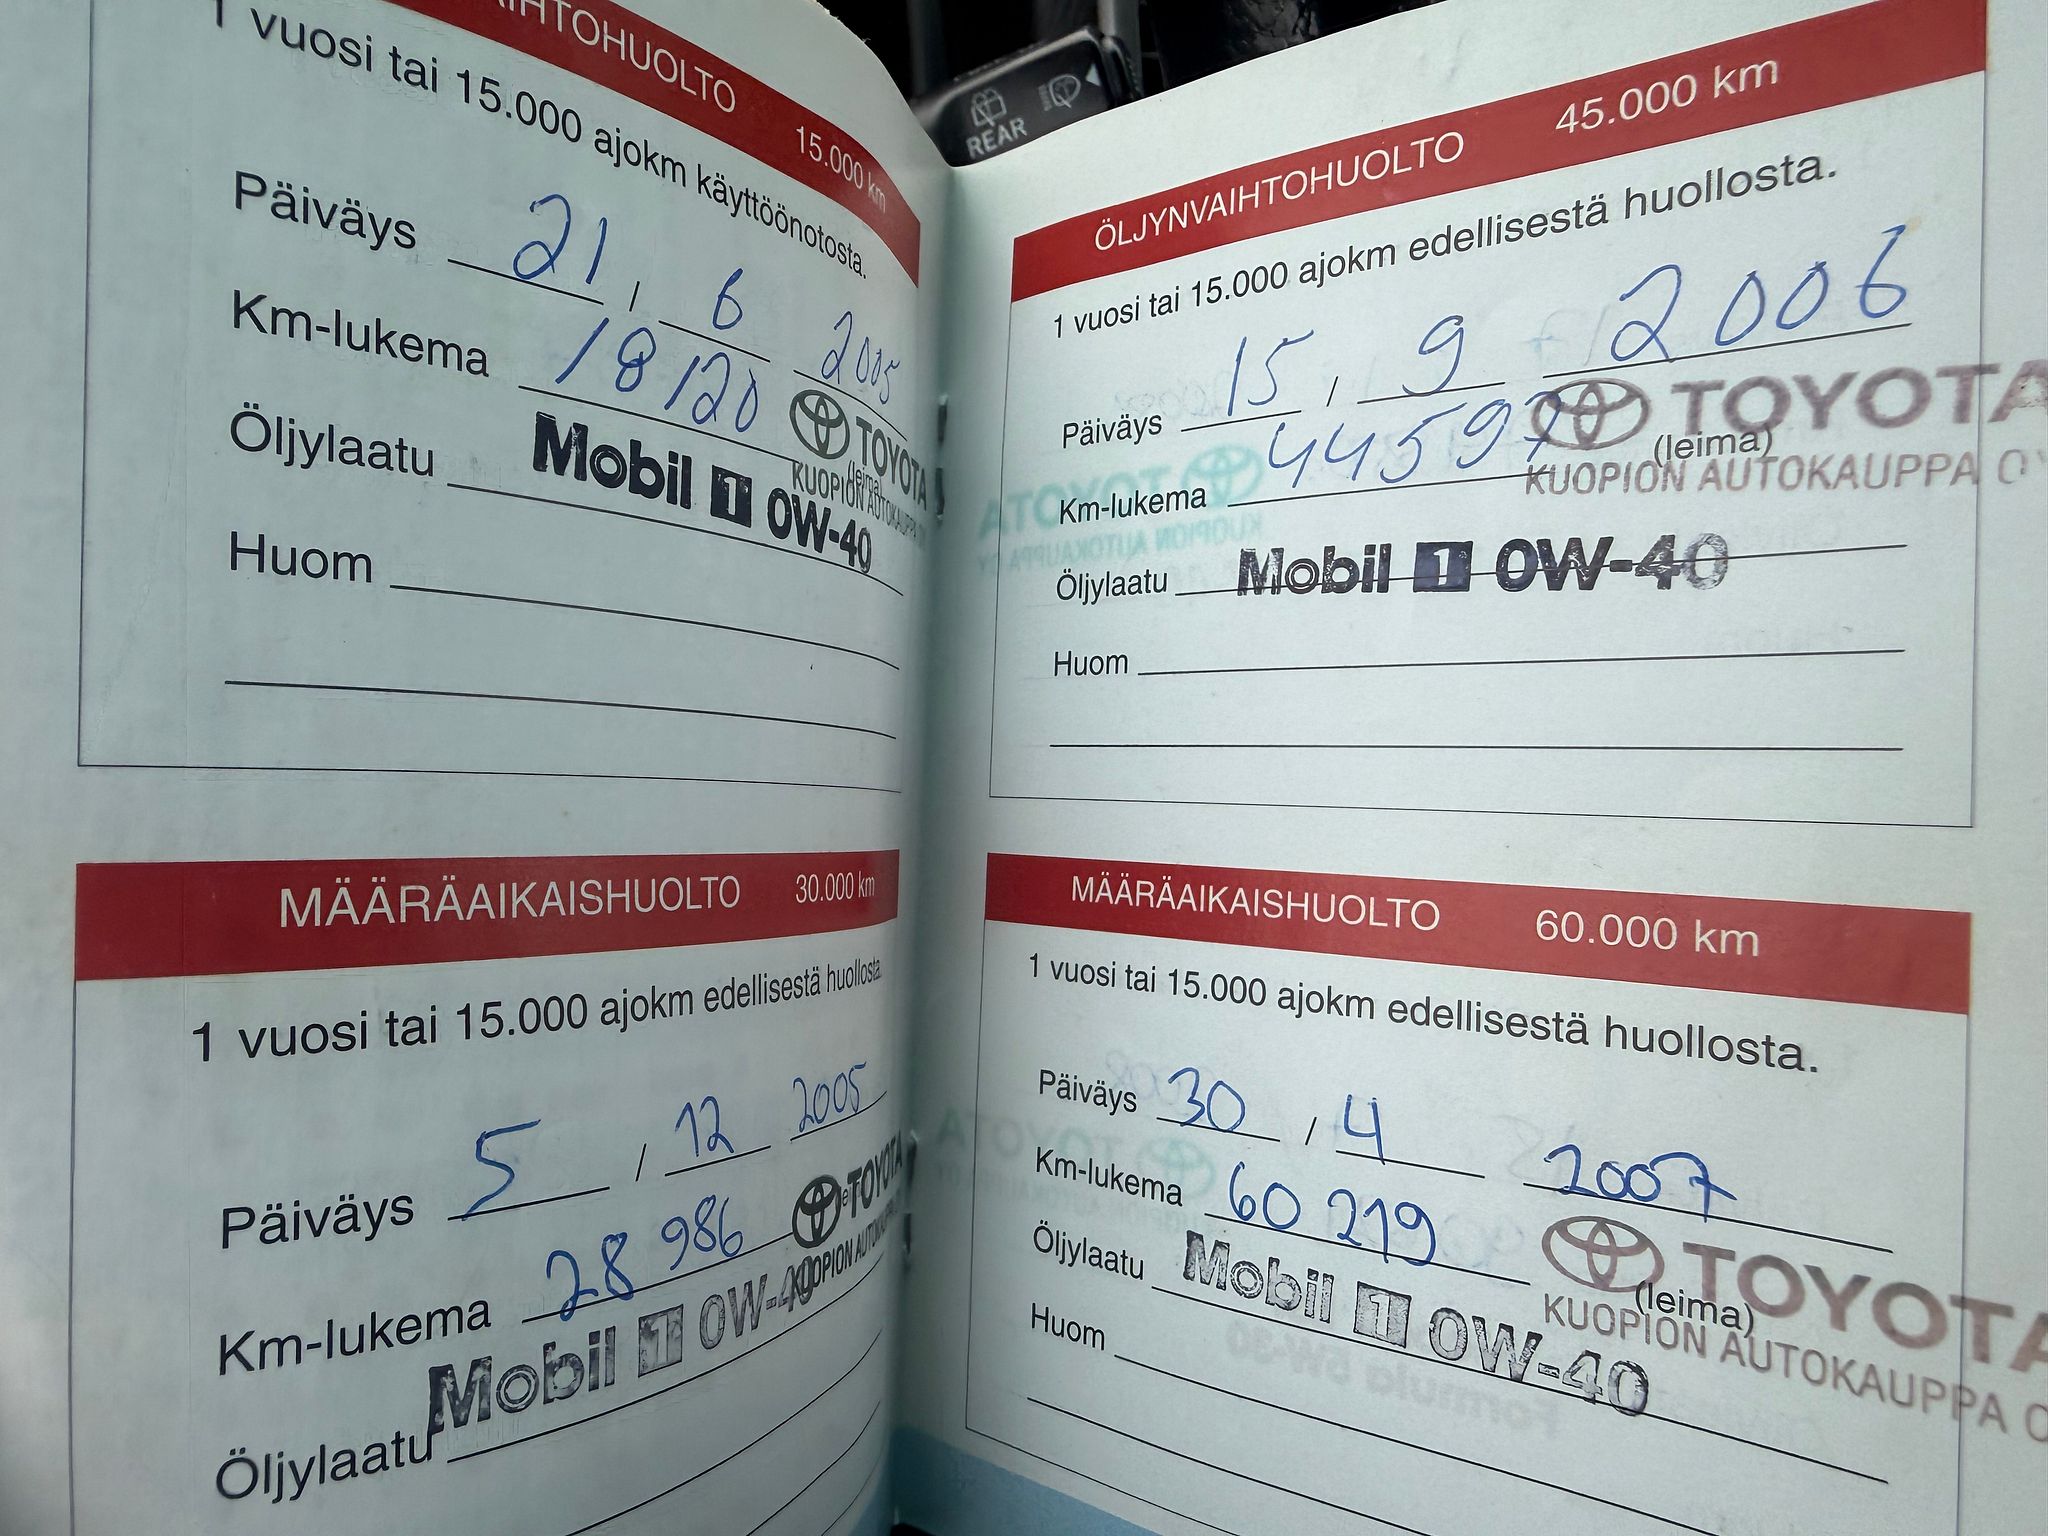 REAR
AIHTOHUOLTO 15.000 km
1 vuosi tai 15.000 ajokm käyttöönotosta.
Päiväys 21 / 6 2005
Km-lukema 18120
TOYOTA
(leima)
KUOPION AUTOKAUPPA OY
Öljylaatu Mobil 1 0W-40
Huom
MÄÄRÄAIKAISHUOLTO 30.000 km
1 vuosi tai 15.000 ajokm edellisestä huollosta.
Päiväys 5 / 12 2005
Km-lukema 28 986
TOYOTA
KUOPION AUTOKAUPPA
Öljylaatu Mobil 1 0W-40
ÖLJYNVAIHTOHUOLTO 45.000 km
1 vuosi tai 15.000 ajokm edellisestä huollosta.
Päiväys 15 / 9 2006
Km-lukema 44597
TOYOTA
(leima)
KUOPION AUTOKAUPPA OY
Öljylaatu Mobil 1 0W-40
Huom
MÄÄRÄAIKAISHUOLTO 60.000 km
1 vuosi tai 15.000 ajokm edellisestä huollosta.
Päiväys 30 / 4 2007
Km-lukema 60 219
TOYOTA
(leima)
KUOPION AUTOKAUPPA O
Öljylaatu Mobil 1 0W-40
Huom